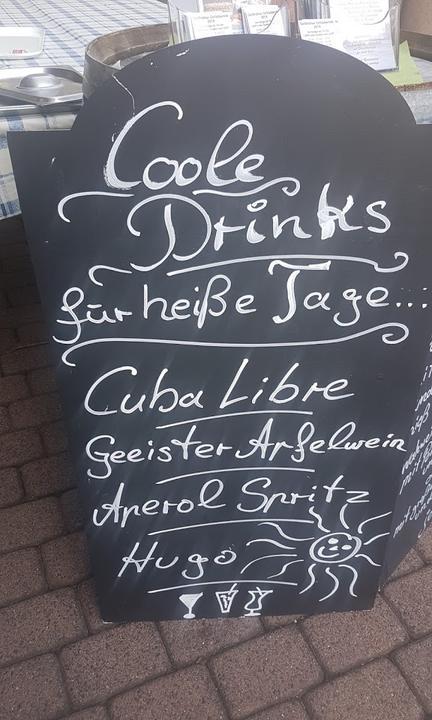 Coole
Drinks
für heiße Tage...
Cuba Libre
Geeister Apfelwein
Aperol Spritz
Hugo